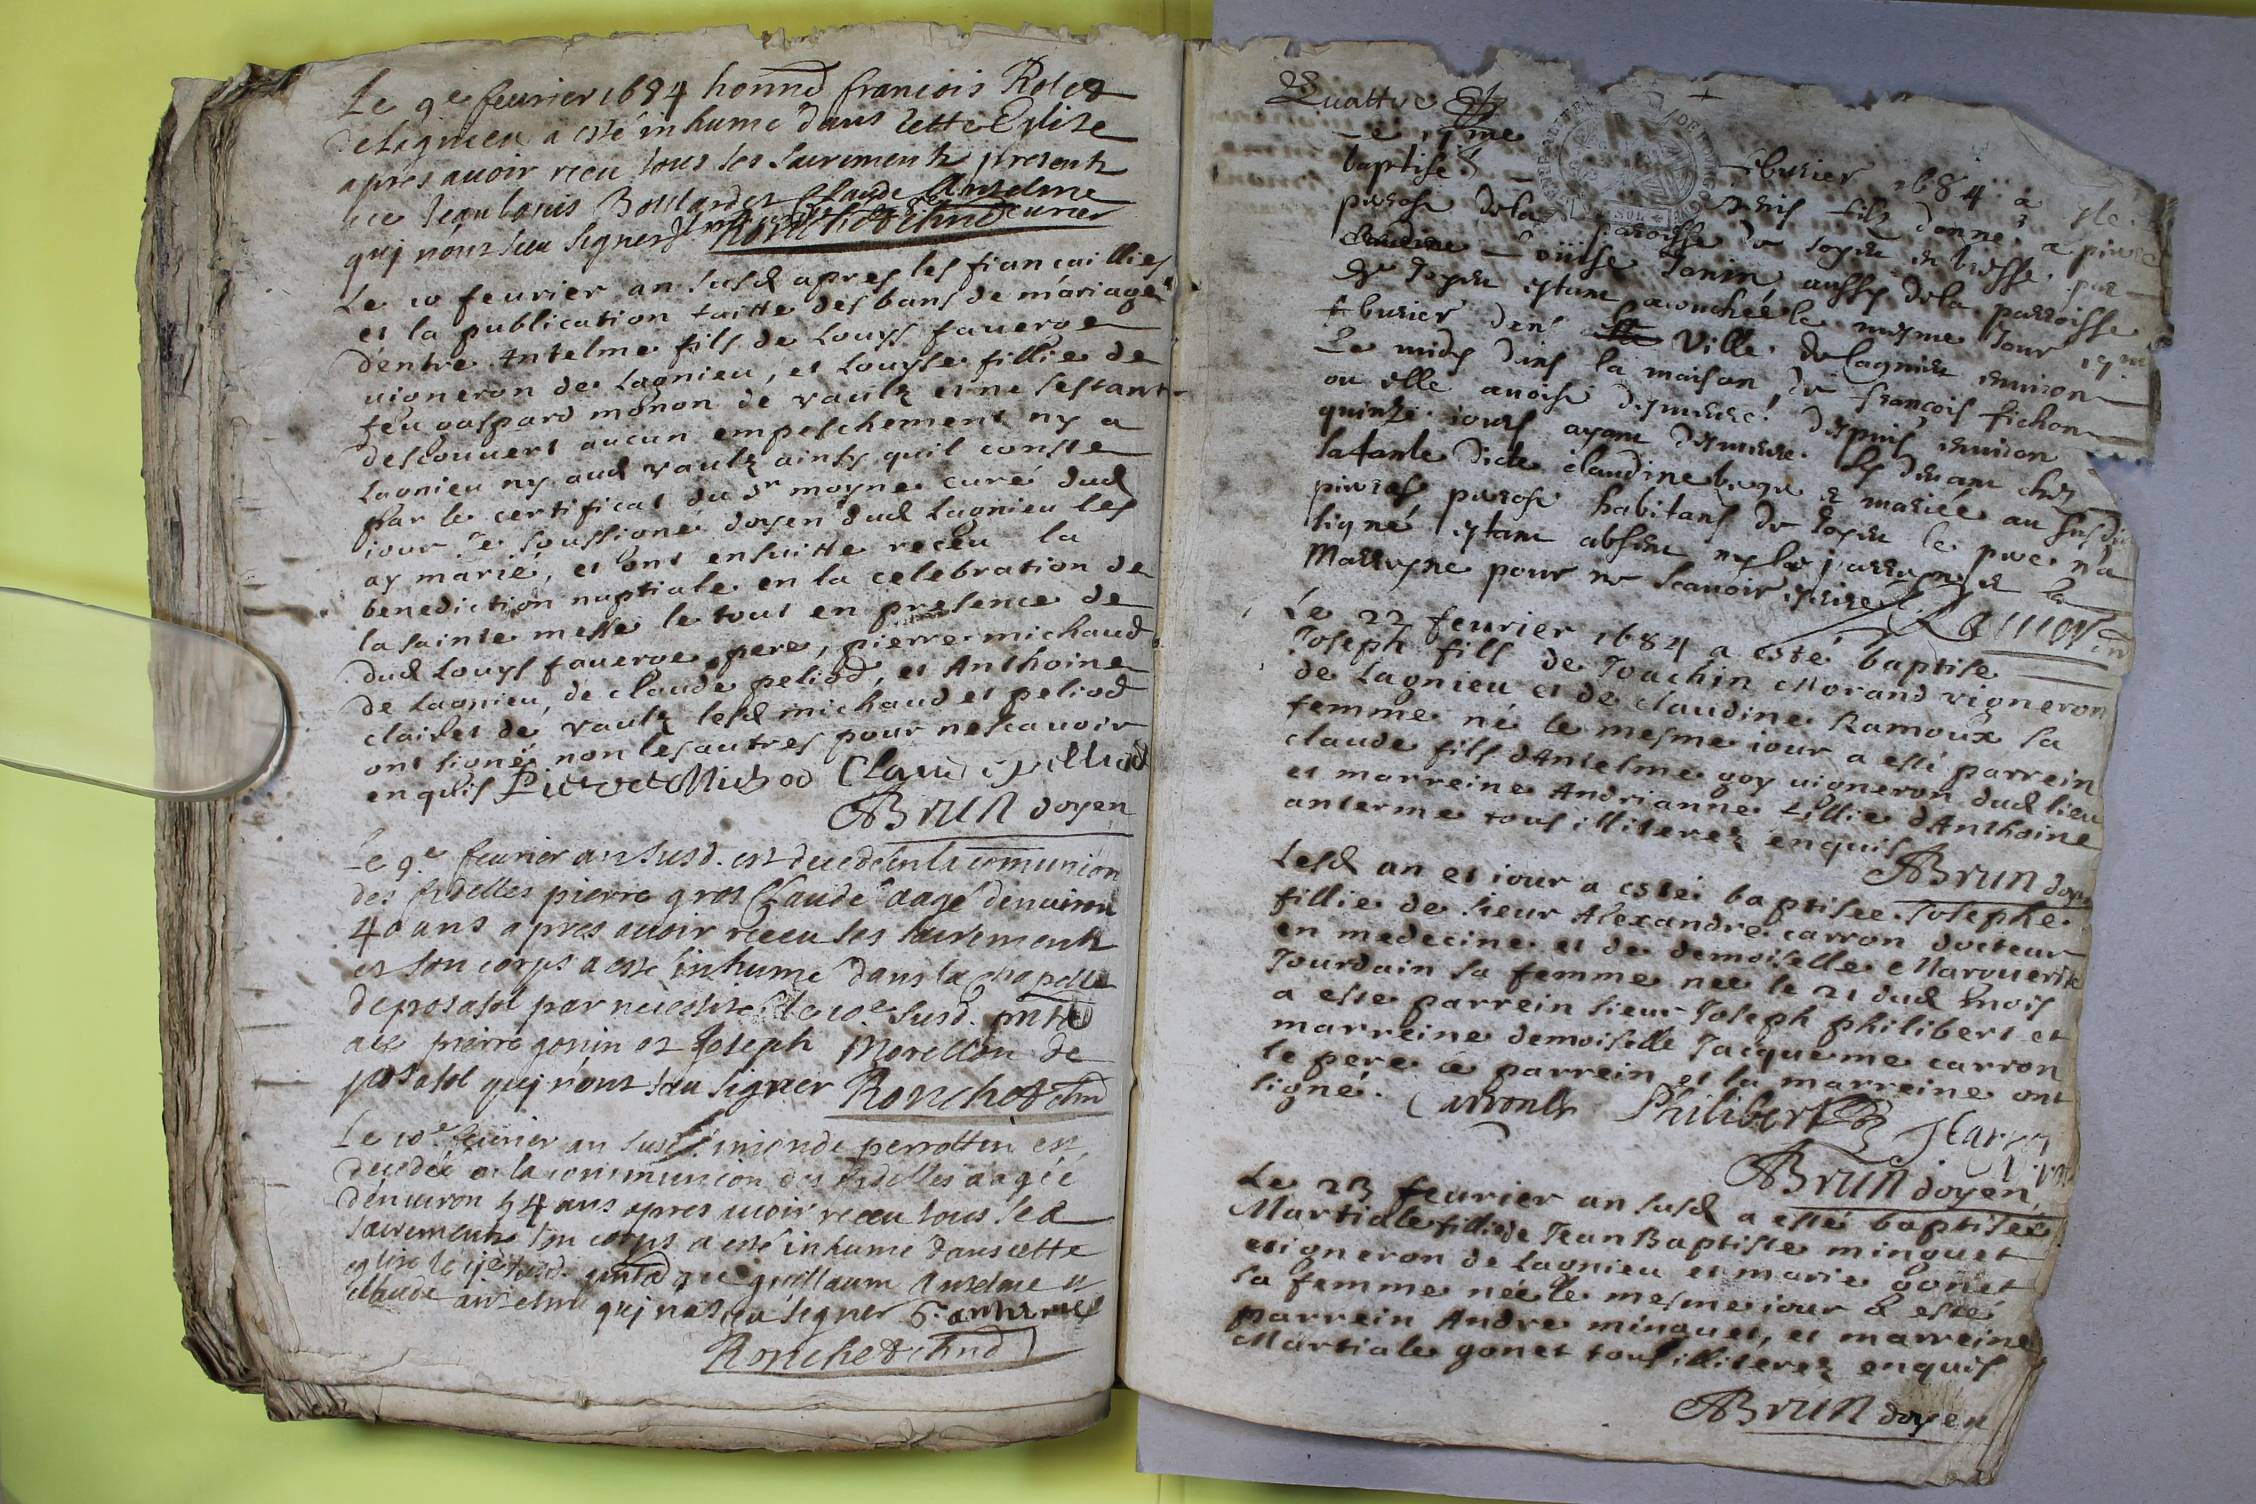 Le 9e feurier 1684 honnd francois Rolet
de Lagnieu a esté inhumé dans cette Eglise
apres avoir receu tous les sacrements presents
Jean Louis Boulardet Claude Antelme
qui n'ont sceu signer
Ronchet
Le 10 feurier an susd apres les fiancailles
et la publication faitte des bans de mariage
d'entre Antelme fils de Louys faverge
uigneron de Lagnieu, et Louyse fillie de
feu gaspard monon de vaulx et ne sestant
descouuert aucun empeschement ny a
Lagnieu ny aud vaulx ainsy quil conste
par le certificat du Sr moyne curé dud
iour Je soussigné doyen dud Lagnieu les
ay marié, et ont ensuitte receu la
benediction nuptiale en la celebration de
la sainte messe le tout en presence de
dud Louys faverge pere, pierre michaud
de Lagnieu, de claude peliod, et Anthoine
claiset de vaulx lesd michaud et peliod
ont signé non les autres pour ne scauoir
enquis Pierre Michod Claude pelliod
Brun doyen
Le 9e feurier an susd. est decedé en la comunion
des fidelles pierre gros Claude aagé denuiron
40 ans apres auoir receu ses sacrements
et son corps a esté inhumé dans la chapelle
de posafol par necessité le 10e susd.
pierre gonin et Joseph Morellon de
posafol qui n'ont sceu signer Ronchet
Le 10e feurier an susd. perrottin est
decedée en la communion des fidelles aagée
denuiron 54 ans apres auoir receu tous ses
sacrements son corps a esté inhumé dans cette
eglise le susd. guillaum Antelme et
claude antelme qui n'a sceu signer G. antelme
Ronchet
Quattre
Le 19me
baptisé feburier 1684 a esté
fils donné a pierre
paroisse de Loyeu en bresse. par
Louise Janin aussy de la parroisse
de Loyeu estant acouchée le mesme Jour 19me
feburier den Ville de Lagnieu enuiron
Le midy dans la maison de françois fichon
ou elle auoist demeuré depuis enuiron
quinze iours ayant demeuré cy deuant chez
sa tante dicte claudine mariée au susdit
habitans de Loyeu le pere n'a
signé estant absent ny le parrayn et la
Marrayne pour ne scauoir escrire
Le 22 feurier 1684 a esté baptisé
Joseph fils de Joachin Morand vigneron
de Lagnieu et de claudine Ramoux sa
femme né le mesme iour a esté parrein
claude fils d'Antelme goy uigneron dud lieu
et marreine Andrianne fillie d'Anthoine
anterme tous illiterez enquis
Brun doyen
Lesd an et iour a esté baptisée Josephe
fillie de sieur Alexandre carron docteur
en medecine et de demoiselle Marguerite
Jourdain sa femme nee le 21 dud mois
a esté parrein sieur Joseph philibert et
marreine demoiselle Jacqueme carron
le pere le parrein et la marreine ont
signé. Carron Philibert J Carron
Brun doyen
Le 23 feurier an susd a esté baptisée
Martiale fillie de Jean Baptiste minguet
uigneron de Lagnieu et marie gonet
sa femme née le mesme iour a esté
parrein Andre minguet, et marreine
Martiale gonet tous illiterez enquis
Brun doyen